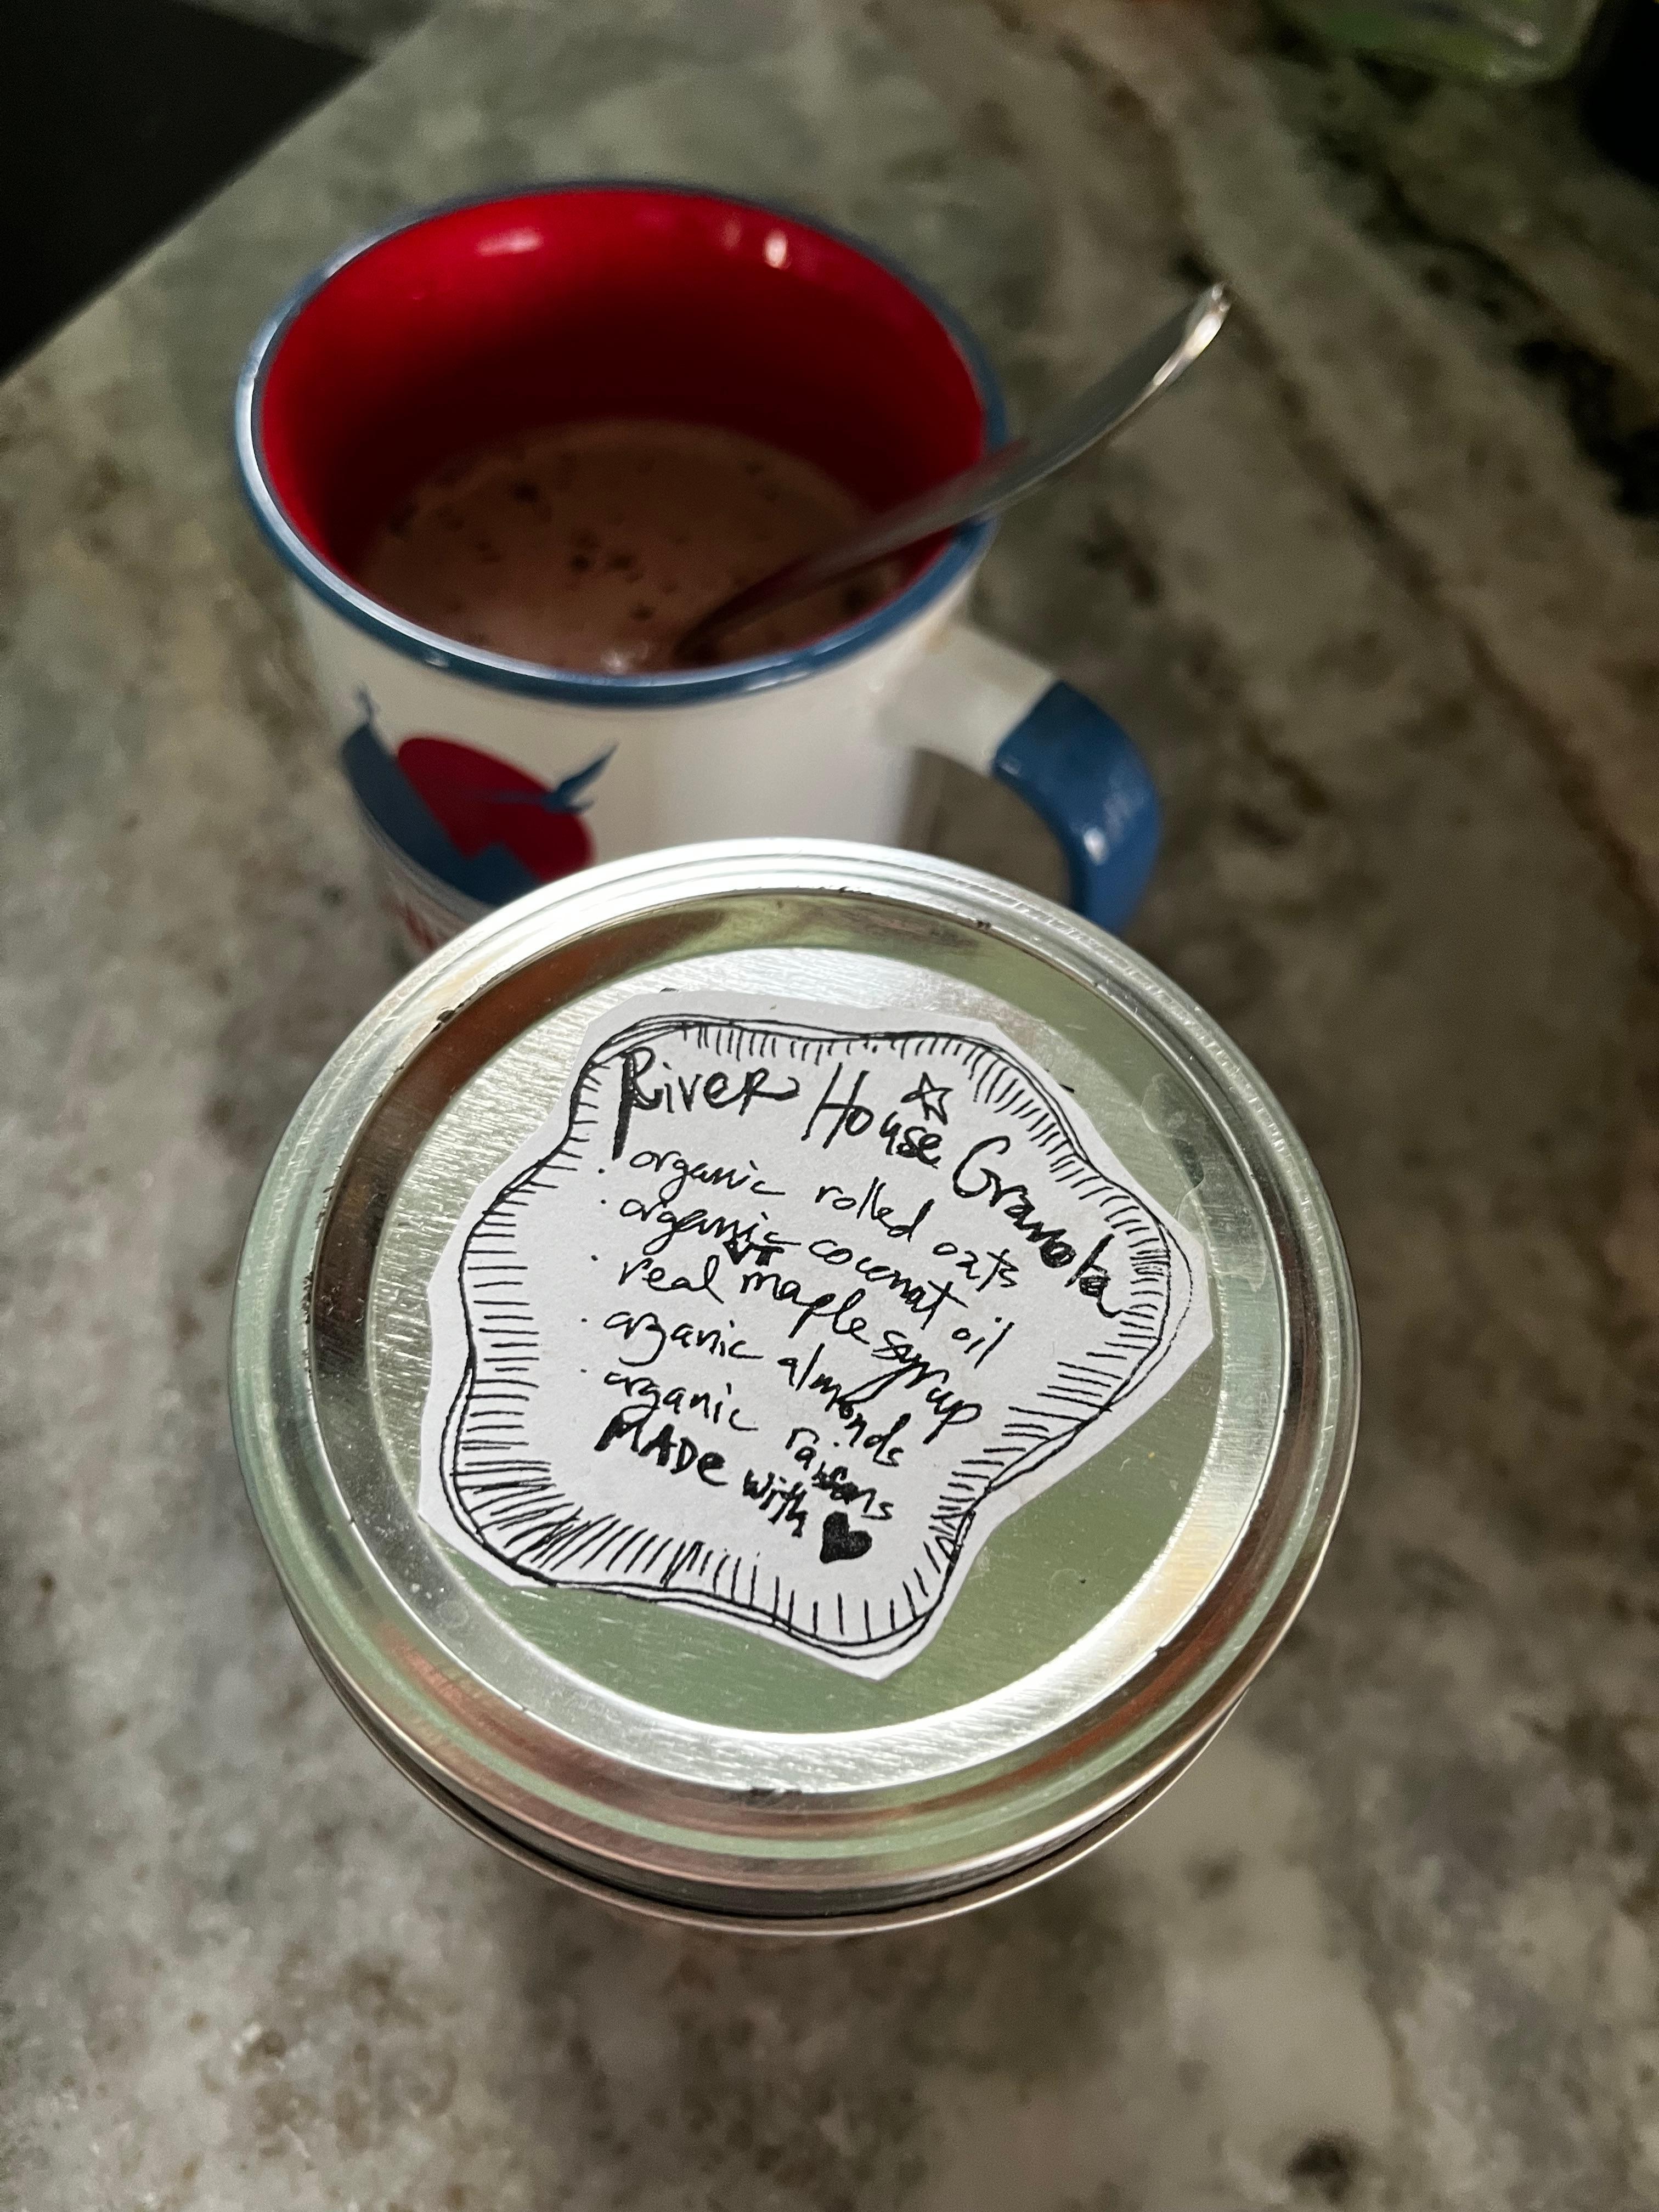 River House Granola
· organic rolled oats
· organic coconut oil
VT
· real maple syrup
· organic almonds
· organic raisins
MADe with